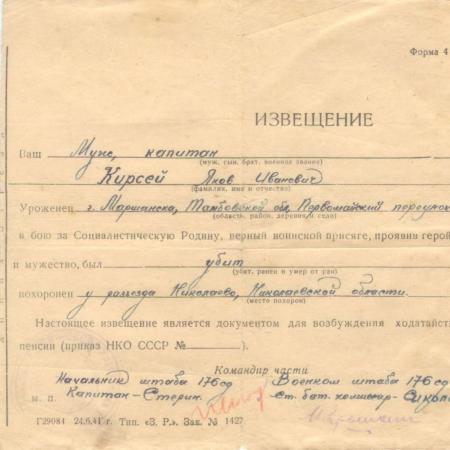 Форма 4
ИЗВЕЩЕНИЕ
Ваш Муж, капитан
(муж, сын, брат, военное звание)
Кирсей Яков Иванович
(фамилия, имя и отчество)
Уроженец г. Маршанска, Тамбовской обл, Первомайский переулок
(область, район, деревня и село)
в бою за Социалистическую Родину, верный воинской присяге, проявив герой
и мужество, был убит
(убит, ранен и умер от ран)
похоронен у разъезда Николаево, Николаевской области.
(место похорон)
Настоящее извещение является документом для возбуждения ходатайст
пенсии (приказ НКО СССР № ).
Командир части
Начальник штаба 176 сд Военком штаба 176 сд
м. п. Капитан - Стерин. Ст. бат. комиссар -
Г29084 24.6.41 г. Тип. «З. Р.» Зак. № 1427